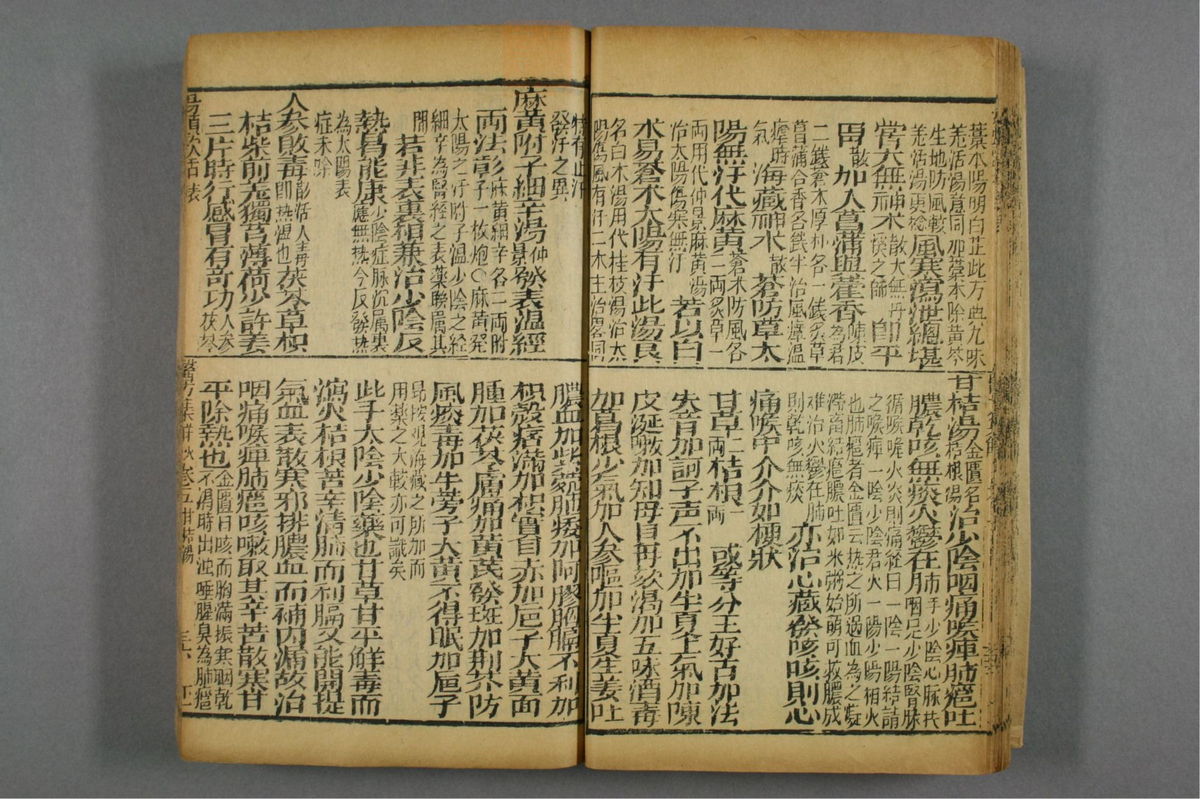 藁本陽明白芷此方與九味
羌活湯意同加藁本除黃芩
生地防風較
羌活湯更穩
風寒瀉泄總堪
常六無神朮散太無丹
疾之師
卽平
胃散加入菖蒲與藿香陳皮
為君
二錢蒼朮厚朴各一錢炙草
菖蒲合香各錢半治風瘴瘟
瘧時
氣
海藏神朮散蒼防草太
陽無汗代麻黃蒼朮防風各
二兩炙草一
兩用代仲景麻黃湯
治太陽傷寒無汗
若以白
朮易蒼朮太陽有汗此湯良
名白朮湯用代桂枝湯治太
陽傷風有汗二朮主治畧同
甘桔湯金匱名
桔梗湯
治少陰咽痛喉痺肺癰吐
膿乾咳無痰火鬱在肺手少陰心脉挾
咽足少陰腎脉
循喉嚨火炎則痛經曰一陰一陽結謂
之喉痺一陰少陰君火一陽少陽相火
也肺癰者金匱云熱之所過血為之凝
滯畜結癰膿吐如米粥始萌可救膿成
難治火鬱在肺
則乾咳無痰
亦治心藏發咳咳則心
痛喉中介介如梗狀
甘草二兩桔梗一兩 或等分王好古加法
失音加訶子声不出加半夏上氣加陳
皮涎嗽加知母貝母欬渴加五味酒毒
加葛根少氣加人參嘔加半夏生姜吐
特有止汗
發汗之異
麻黃附子細辛湯仲景發表溫經
兩法彰麻黃細辛各二兩附
子一枚炮○麻黃發
太陽之汗附子溫少陰之經
細辛為腎經之表藥聯屬其
間
若非表裏相兼治少陰反
熱曷能康少陰症脉沉屬裏
應無熱今反發熱
為太陽表
症未除
人參敗毒彭活人書毒
即熱濕也
茯苓草枳
桔柴前羌獨芎薄荷少許姜
三片時行感冒有奇功人參
茯苓
湯頭歌括 表
膿血加紫菀肺痿加阿膠胸膈不利加
枳殼痞滿加枳實目赤加梔子大黃面
腫加茯苓膚痛加黃芪發斑加荆芥防
風疫毒加牛蒡子大黃不得眠加梔子
昂按觀海藏之所加而
用藥之大較亦可識矣
此手太陰少陰藥也甘草甘平解毒而
瀉火桔梗苦辛清肺而利膈又能開提
氣血表散寒邪排膿血而補內漏故治
咽痛喉痺肺癰咳嗽取其辛苦散寒甘
平除熱也金匱曰咳而胸滿振寒咽乾
不渴時出濁唾腥臭為肺癰
醫方集解 卷五 甘桔湯 三六